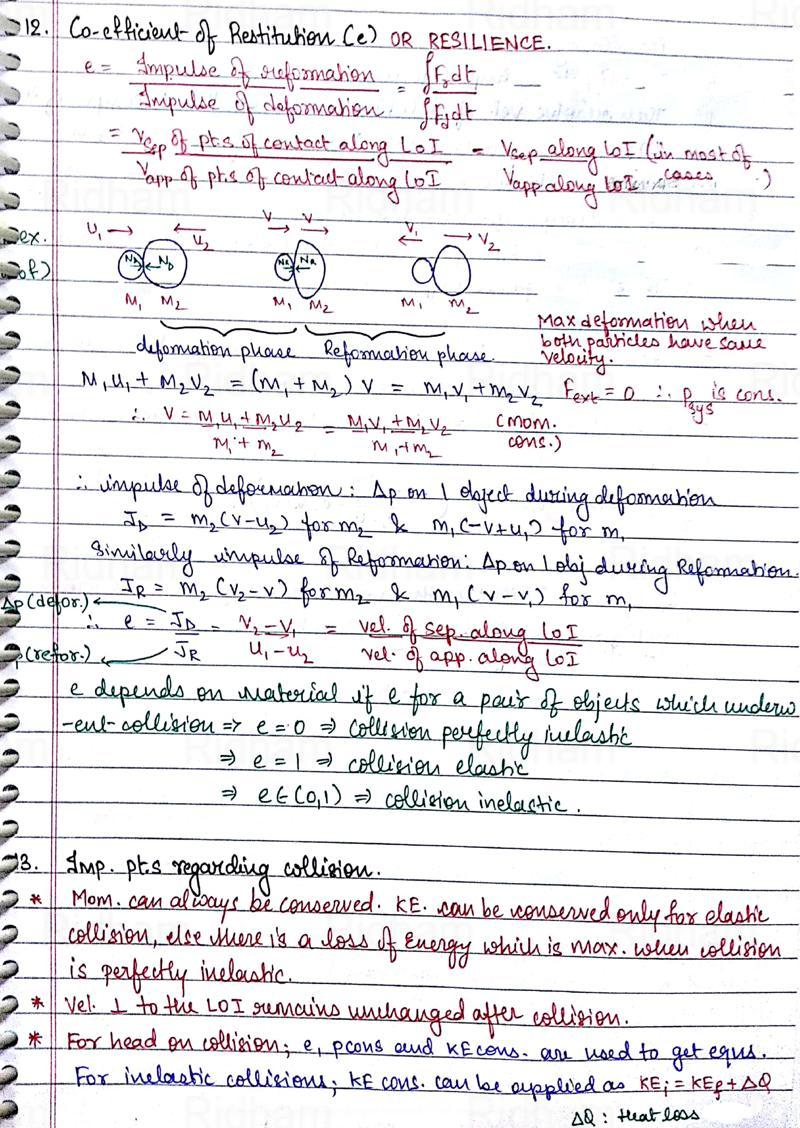 12. Co-efficient of Restitution (e) OR RESILIENCE.
e = Impulse of reformation / Impulse of deformation = ∫F_r dt / ∫F_d dt
= V_sep of pts of contact along LoI / V_app of pts of contact along LoI = V_sep along LoI / V_app along LoI (in most of cases.)
ex. U₁ → ← U₂ V → V → ← V₁ → V₂
of) N_D N_D N_R N_R
M₁ M₂ M₁ M₂ M₁ M₂
deformation phase Reformation phase.
Max deformation when
both particles have same
velocity.
M₁U₁ + M₂V₂ = (M₁ + M₂) V = M₁V₁ + m₂V₂ F_ext = 0 ∴ P_sys is cons.
∴ V = M₁U₁ + M₂U₂ / M₁ + m₂ = M₁V₁ + M₂V₂ / M₁ + m₂ (mom. cons.)
∴ impulse of deformation: Δp on 1 object during deformation
J_D = m₂(V-U₂) for m₂ & m₁(-V+U₁) for m₁
Similarly impulse of Reformation: Δp on 1 obj during Reformation.
J_R = m₂(V₂-V) for m₂ & m₁(V-V₁) for m₁
Δp (defor.) ←
∴ e = J_D / J_R = V₂-V₁ / U₁-U₂ = vel. of sep. along LoI / vel. of app. along LoI
(refor.) ←
e depends on material if e for a pair of objects which underw
-ent collision => e = 0 => collision perfectly inelastic
=> e = 1 => collision elastic
=> e ∈ (0,1) => collision inelastic.
13. Imp. pts regarding collision.
* Mom. can always be conserved. KE. can be conserved only for elastic
collision, else there is a loss of Energy which is max. when collision
is perfectly inelastic.
* Vel. ⊥ to the LOI remains unchanged after collision.
* For head on collision; e, pcons and KEcons. are used to get equs.
For inelastic collisions; KE cons. can be applied as KE_i = KE_f + ΔQ
ΔQ : Heat loss